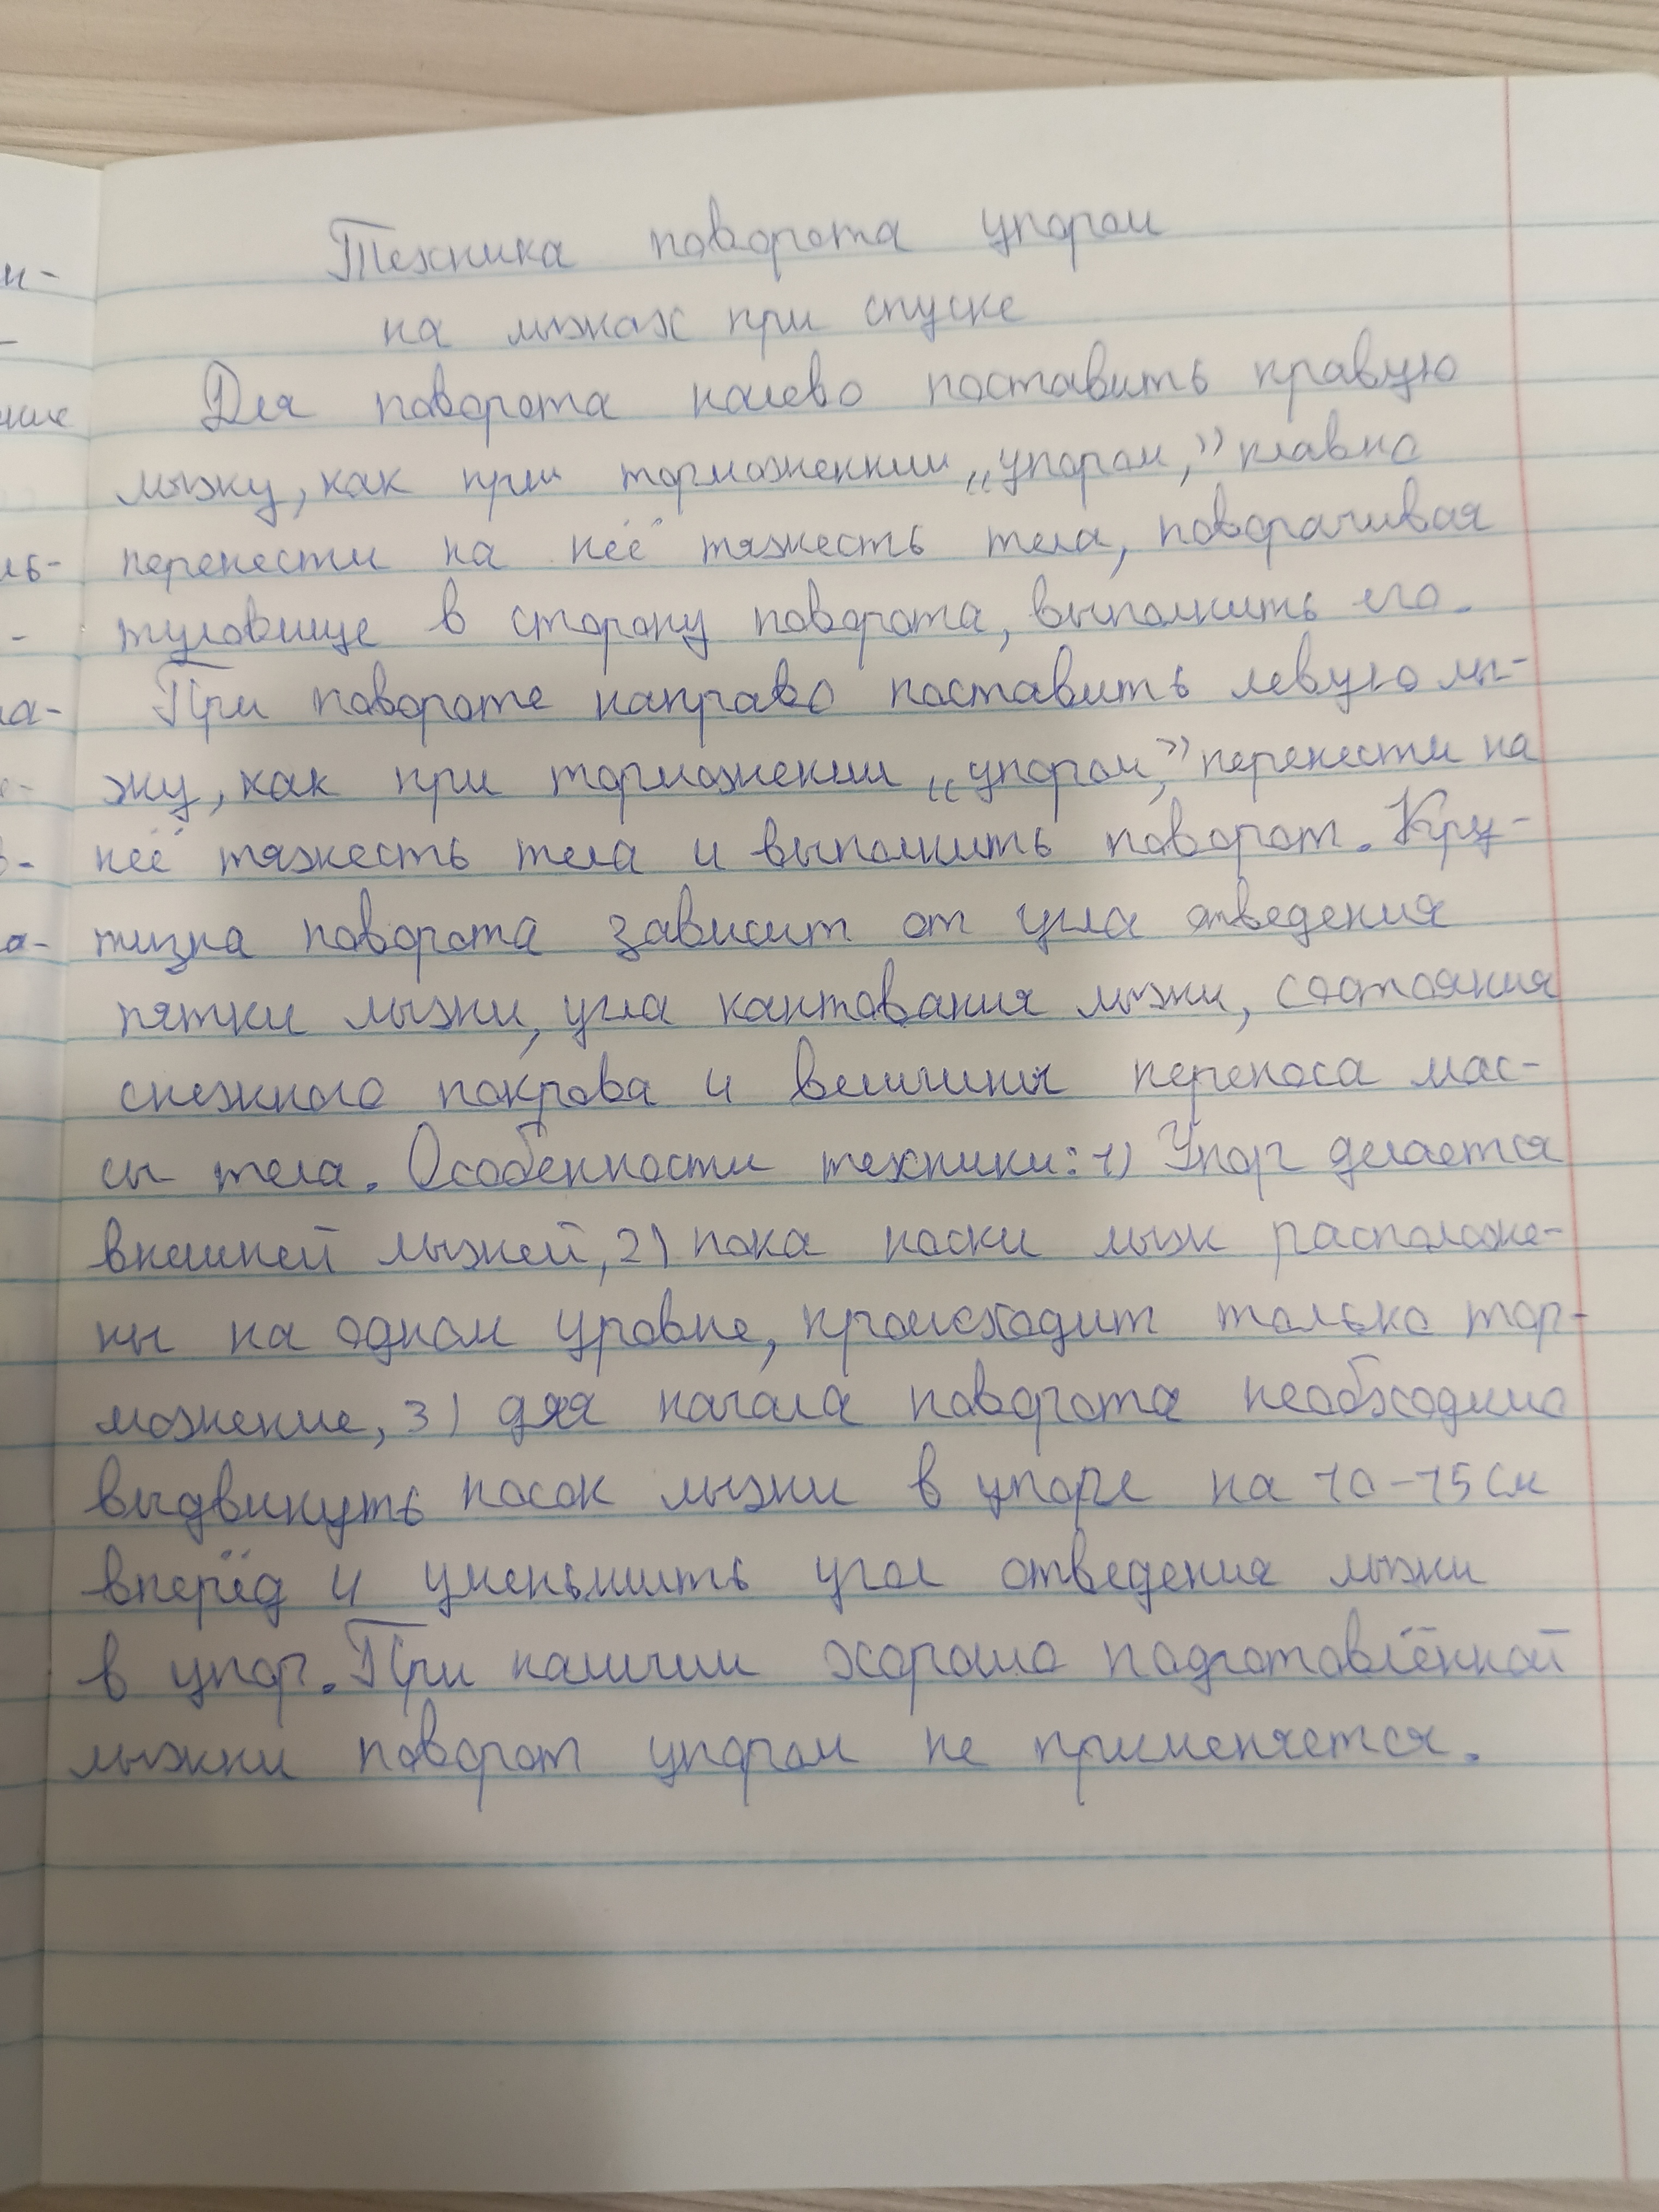 Техника поворота упором
на лыжах при спуске
Для поворота налево поставить правую
лыжу, как при торможении „упором,” плавно
перенести на неё тяжесть тела, поворачивая
туловище в сторону поворота, выполнить его.
При повороте направо поставить левую лы-
жу, как при торможении „упором,” перенести на
неё тяжесть тела и выполнить поворот. Кру-
тизна поворота зависит от угла отведения
пятки лыжи, угла кантования лыжи, состояния
снежного покрова и величины переноса мас-
сы тела. Особенности техники: 1) Упор делается
внешней лыжей, 2) пока носки лыж расположе-
ны на одном уровне, происходит только тор-
можение, 3) для начала поворота необходимо
выдвинуть носок лыжи в упоре на 10-15 см
вперёд и уменьшить угол отведения лыжи
в упор. При наличии хорошо подготовлённой
лыжни поворот упором не применяется.